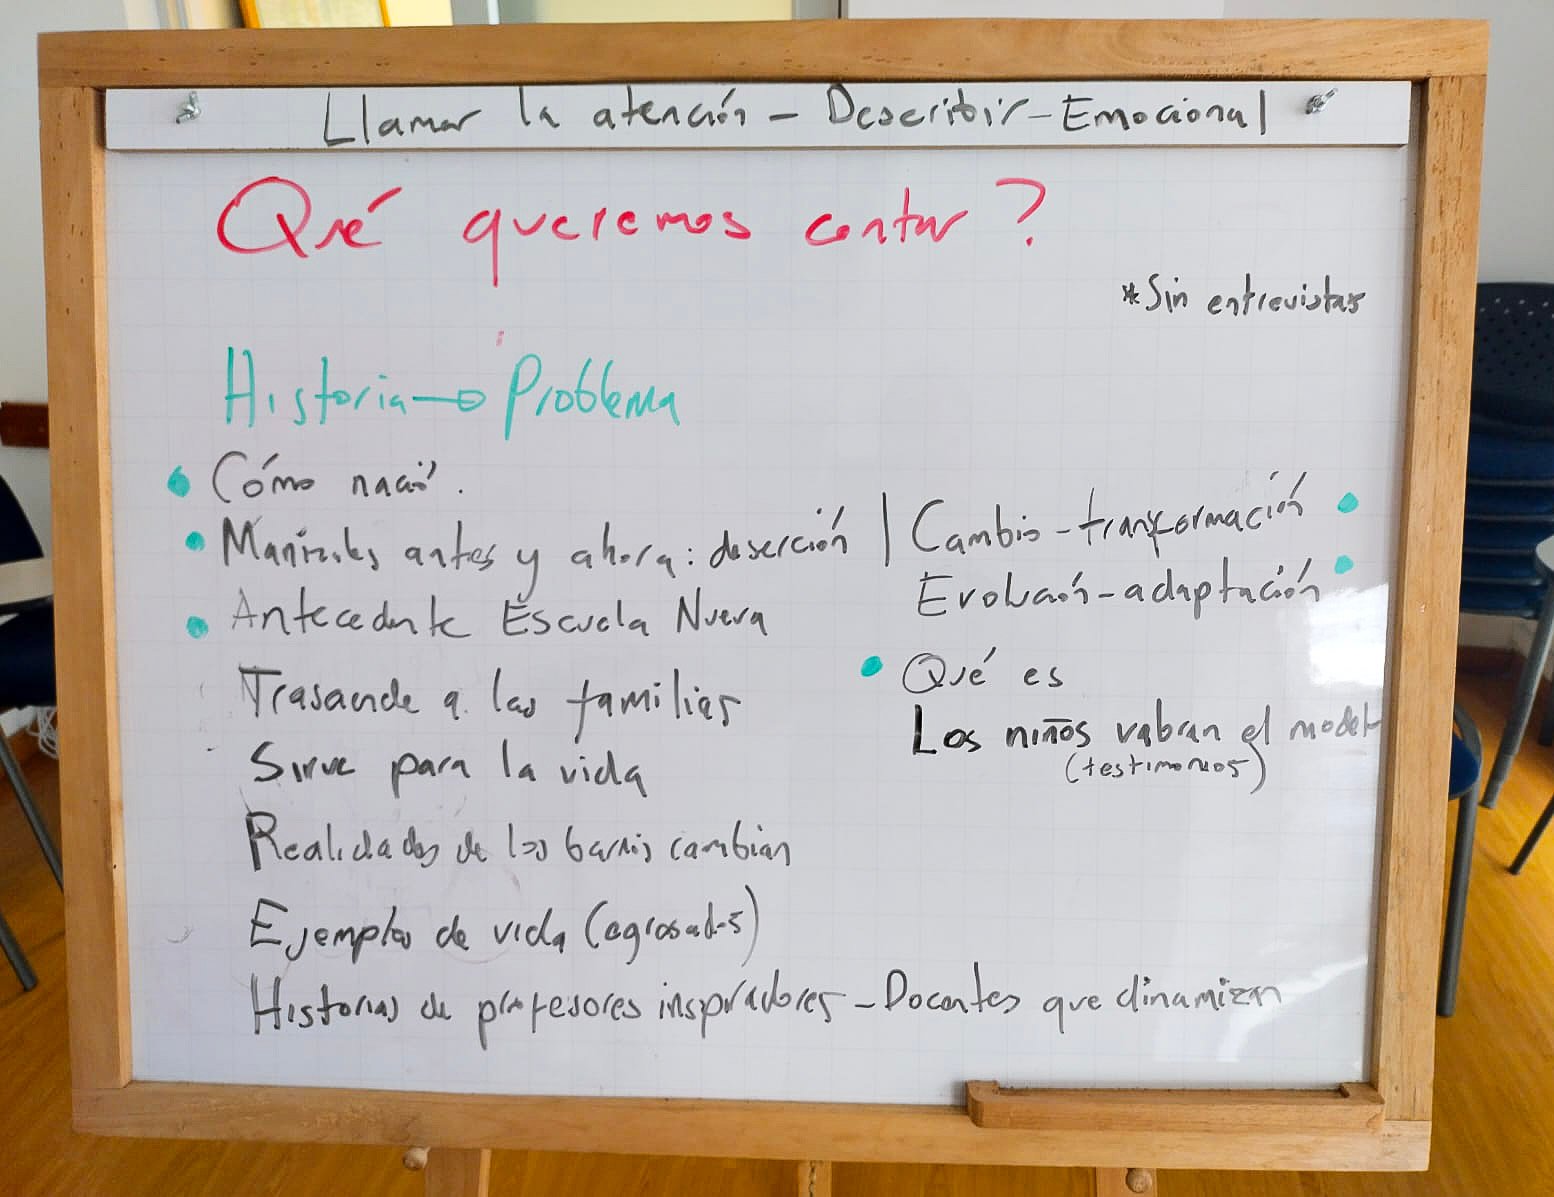 Llamar la atención - Describir - Emocional
Qué queremos contar?
*Sin entrevistas
Historia → Problema
• Cómo nació.
• Manizales antes y ahora: deserción |
• Antecedente Escuela Nueva
Trasciende a las familias
Sirve para la vida
Realidades de los barrios cambian
Ejemplos de vida (egresados)
Historias de profesores inspiradores - Docentes que dinamizan
Cambio - transformación •
Evolución - adaptación •
• Qué es
Los niños valoran el modelo
(testimonios)